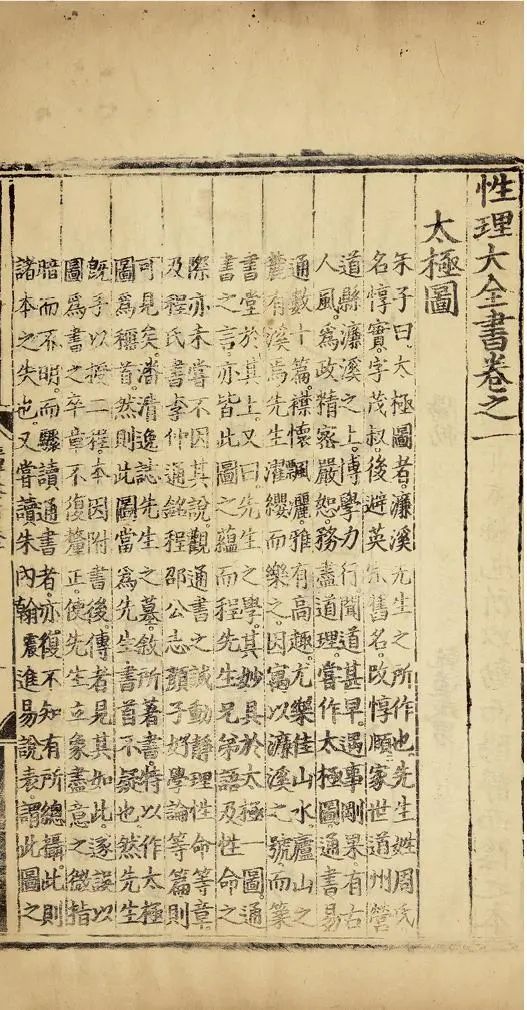 性理大全書卷之一
太極圖
朱子曰。太極圖者。濂溪先生之所作也。先生姓周氏
名惇實。字茂叔。後避英宗舊名。改惇頤。家世道州營
道縣濂溪之上。博學力行。聞道甚早。遇事剛果有古
人風。爲政精密嚴恕。務盡道理。嘗作太極圖通書易
通數十篇。襟懷飄灑。雅有高趣。尤樂佳山水。廬山之
麓有溪焉。先生濯纓而樂之。因寓以濂溪之號而築
書堂於其上。又曰先生之學。其妙具於太極一圖。通
書之言。亦皆此圖之蘊。而程先生兄弟語及性命之
際。亦未嘗不因其說。觀通書之誠動靜理性命等章。
及程氏書李仲通銘程邵公志顏子好學論等篇則
可見矣。潘清逸誌先生之墓。敘所著書。特以作太極
圖爲稱首。然則此圖當爲先生書首不疑也。然先生
既手以授二程。本因附書後。傳者見其如此。遂誤以
圖爲書之卒章。不復釐正。使先生立象盡意之微指
暗而不明。而驟讀通書者。亦復不知有所總攝。此則
諸本之失也。又嘗讀朱內翰震進易說表。謂此圖之